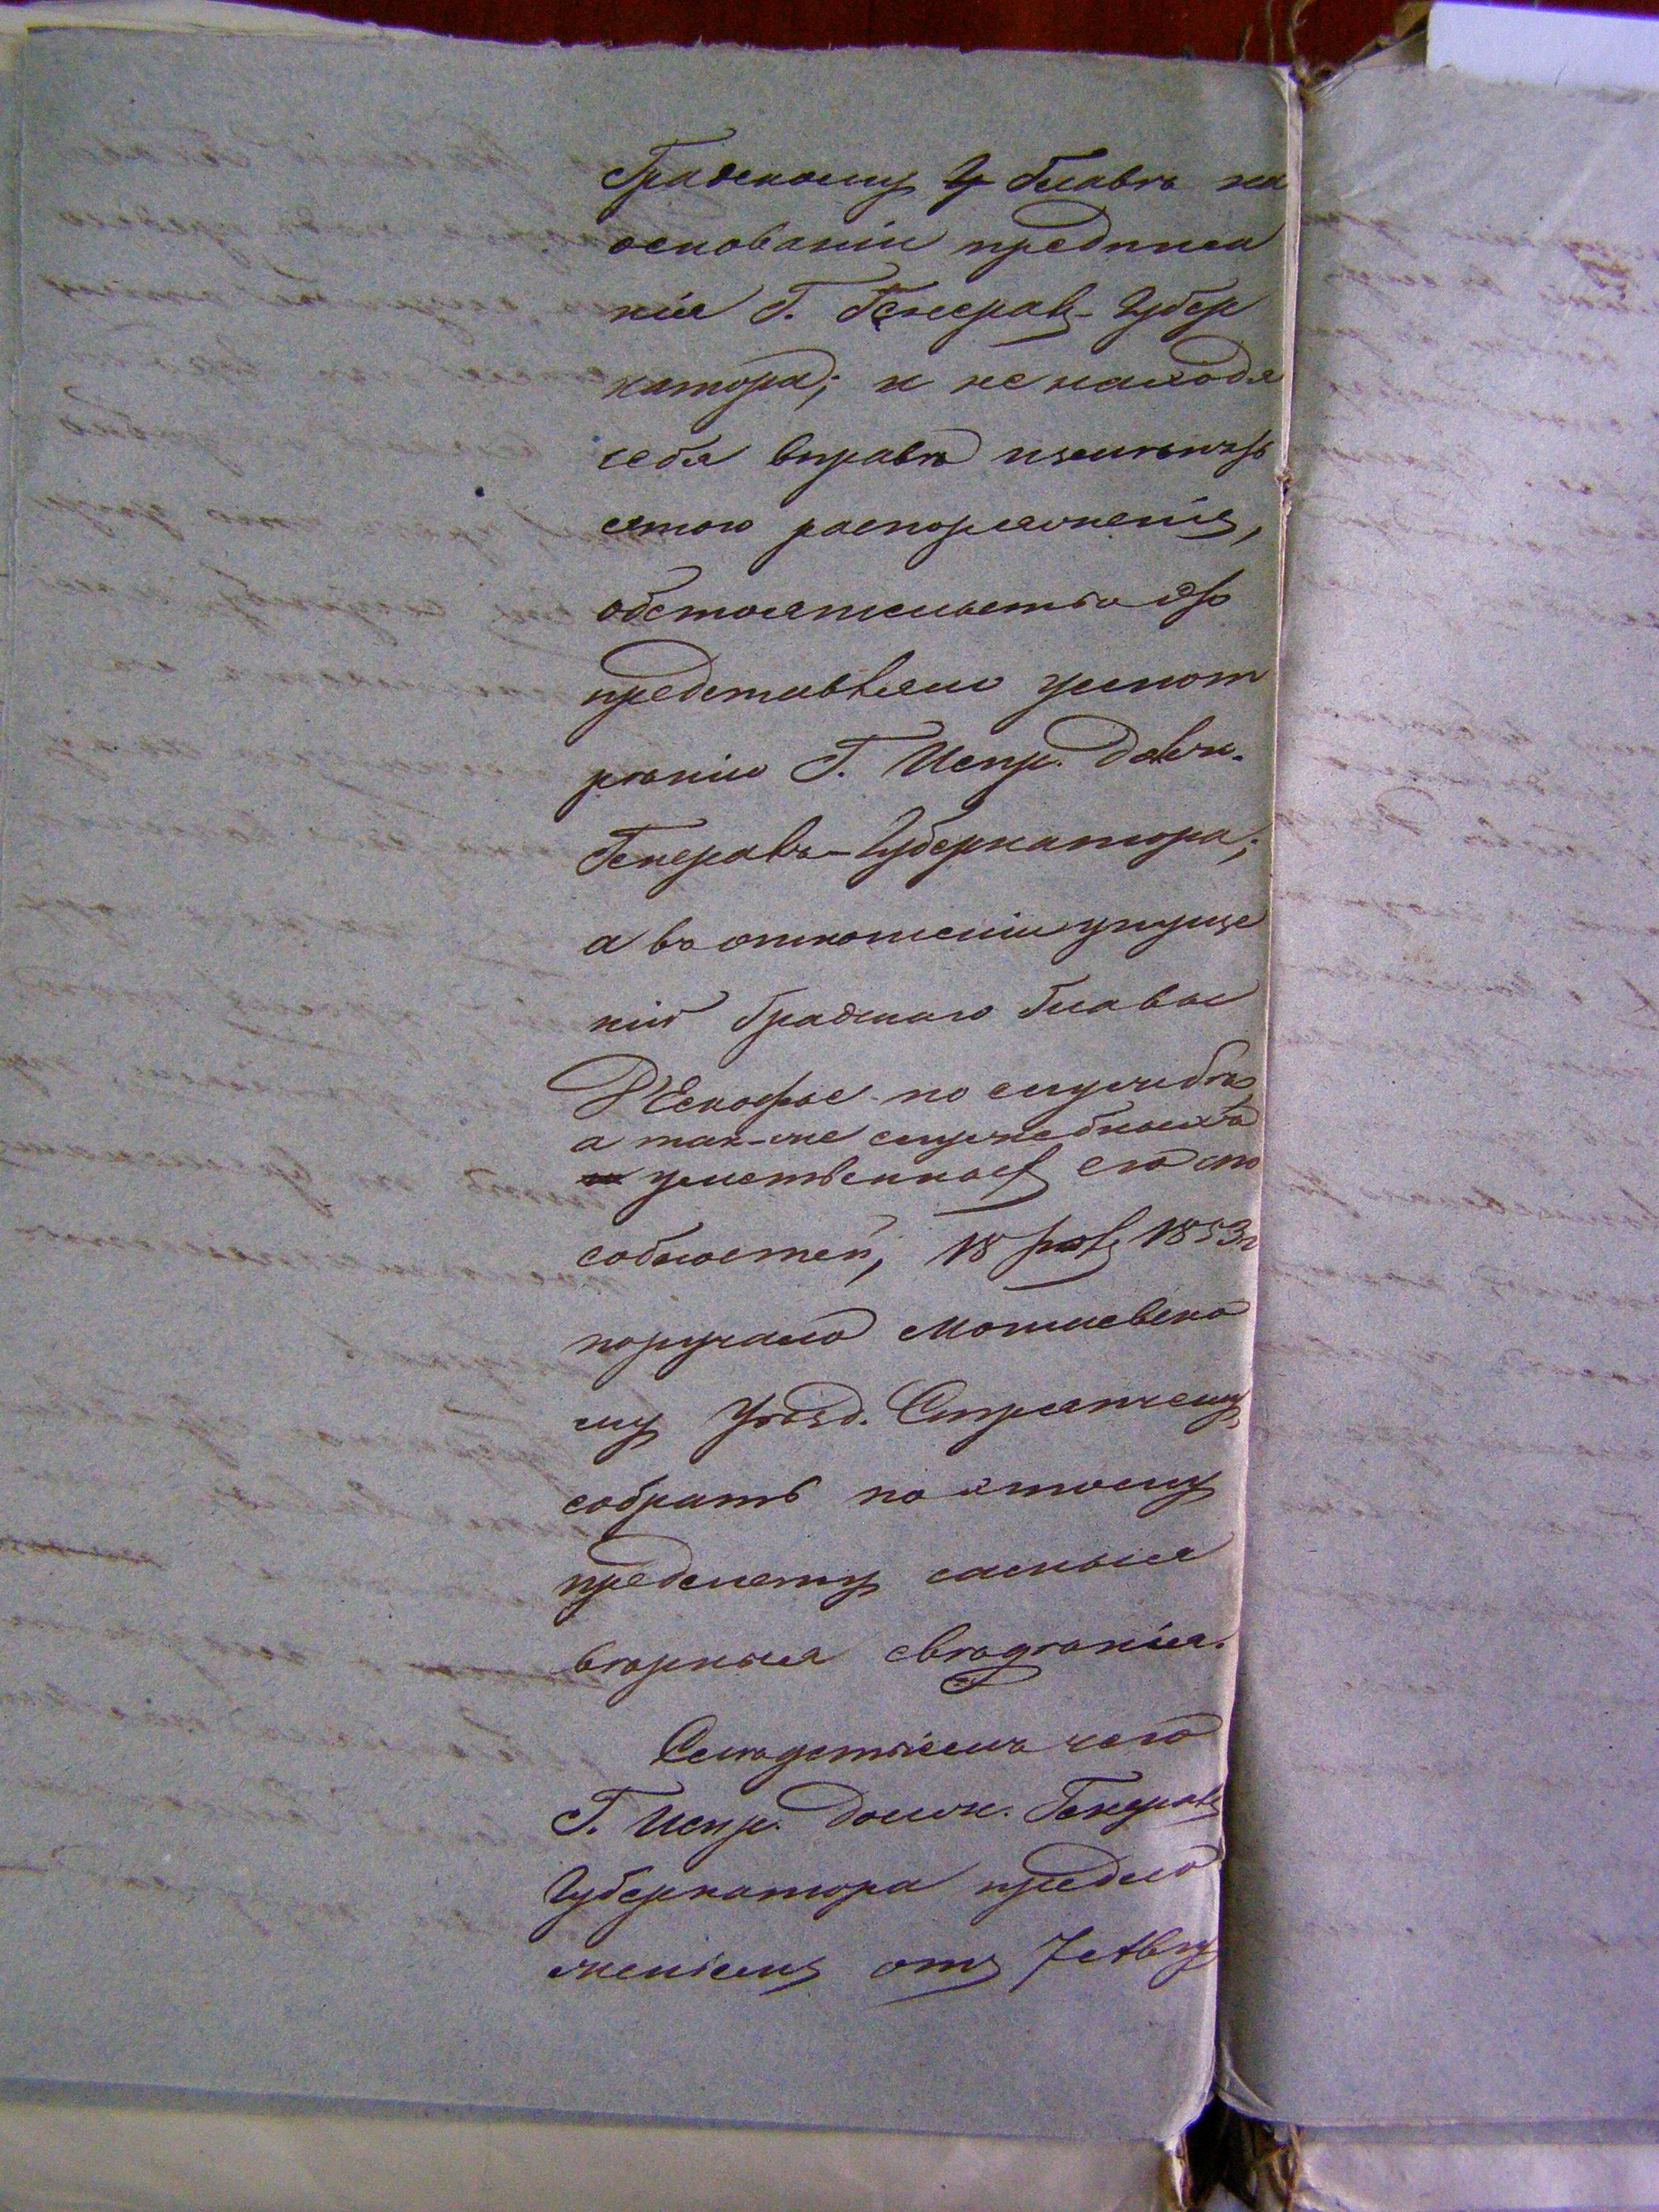 Градскому Главѣ на
основаніи предписа
нія Г. Генералъ-Губер
натора; и не находя
себя вправѣ измѣнить
етого распоряженія,
обстоятельство это
представляло усмот
рѣнію Г. Испр. Долж.
Генералъ-Губернатора;
а въ отношеніи упуще
ній Градскаго Главы
по службѣ,
а так-же служебныхъ
умственныхъ его спо
собностей, 18 1853 г
поручало Могилевско
му Уѣзд. Стряпчему
собрать по етому
предмету самыя
вѣрныя свѣдѣнія.
Слѣдствіемъ чего
Г. Испр. Долж. Генералъ
Губернатора предло
женіемъ отъ 7 Авгу